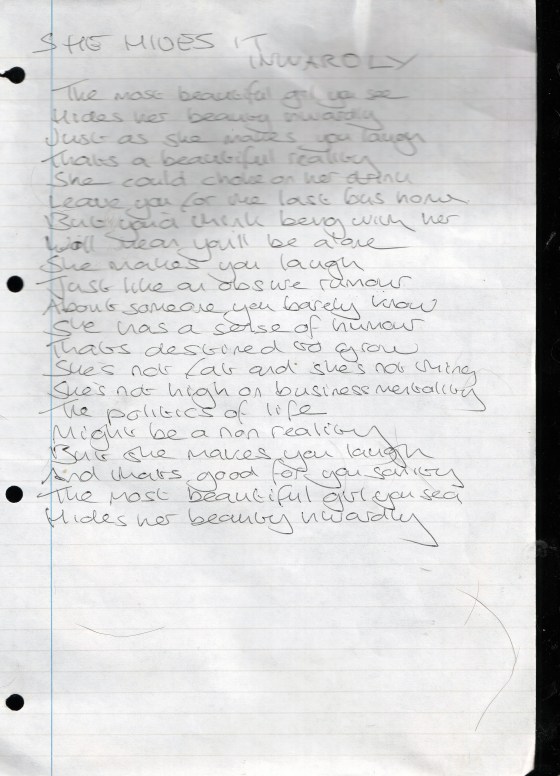 SHE HIDES IT
INWARDLY
The most beautiful girl you see
Hides her beauty inwardly
Just as she makes you laugh
Thats a beautiful reality
She could choke on her drink
Leave you for the last bus home
But you'd think being with her
Will mean you'll be alone
She makes you laugh
Just like an obsure rumour
About someone you barely know
She has a sense of humour
Thats destined to grow
She's not fat and she's not thing
She's not high on business mentality
The politics of life
Might be a non reality
But she makes you laugh
And thats good for you sanity
The most beautiful girl you sea
Hides her beauty inwardly